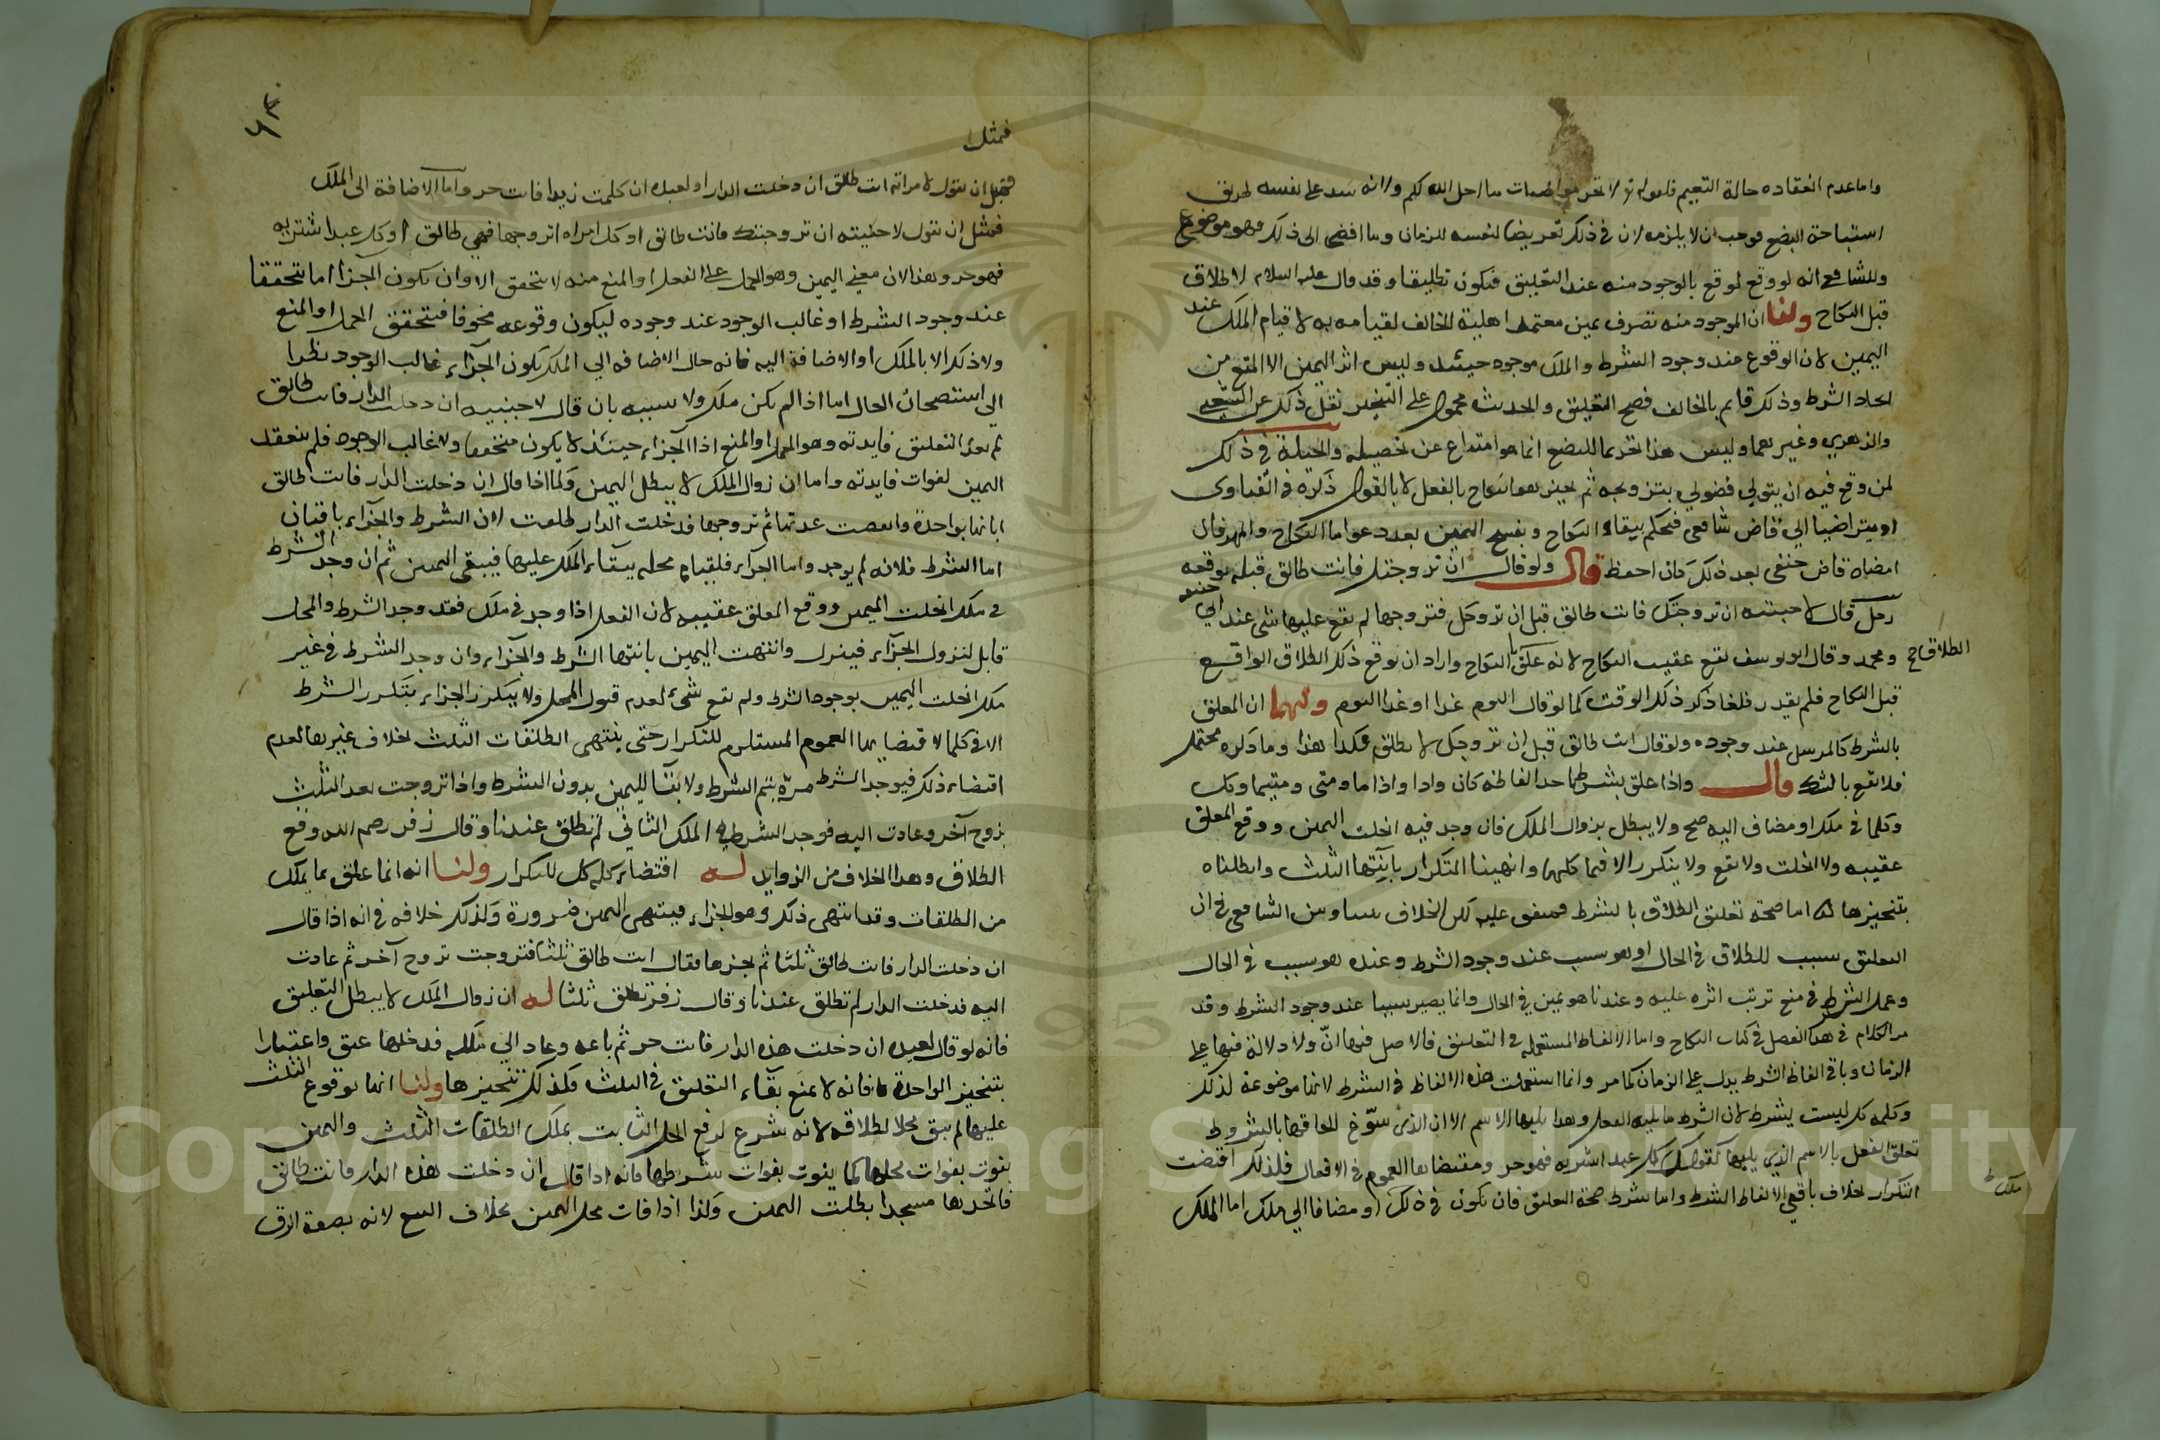 واما عدم انعقاده حالة التعميم فلقوله تع لا تحرموا طيبات ما احل الله لكم ولانه سد على نفسه طريق
استباحة البضع فوجب ان لا يلزمه لان في ذلك تعريضا لنفسه للزنا وما افضى الى ذلك فهو موضوع
وللشافعي انه لو وقع لوقع بالوجود منه عند التعليق فيكون تطليقا وقد قال عليه السلام لا طلاق
قبل النكاح ولنا ان الموجود منه تصرف يمين معتمد اهلية الحالف لقيامه به لا قيام الملك عند
اليمين لان الوقوع عند وجود الشرط والملك موجود حينئذ وليس اثر اليمين الا المنع من
ايجاد الشرط وذلك قايم بالحالف فصح التعليق والحديث محمول على التنجيز نقل ذلك عن الشعبي
والزهري وغيرهما وليس هذا تحريما للبضع انما هو امتناع عن تحصيله والحيلة في ذلك
لمن وقع فيه ان يتولي فضولي بتزويجه ثم يجيز هو النكاح بالفعل لا بالقول ذكره في الفتاوى
او يتراضيا الي قاض شافعي فيحكم ببقاء النكاح وبفسخ اليمين بعد دعواها النكاح والمهر فان
امضاه قاض حنفي بعد ذلك كان احفظ قال ولو قال ان تزوجتك فانت طالق قبله يوقعه
رجل قال لاجنبية ان تزوجتك فانت طالق قبل ان تزوجك فتزوجها لم يقع عليها شي عند ابي حنيفة
ومحمد وقال ابو يوسف يقع عقيب النكاح لانه علق بالنكاح واراد ان يوقع ذلك الطلاق الواقع
الطلاق صح
قبل النكاح فلم يقدر فلغا ذكر ذلك الوقت كما لو قال اليوم غدا او غدا اليوم ولهما ان المعلق
بالشرط كالمرسل عند وجوده ولو قال انت طالق قبل ان تزوجك لا تطلق فكذا هذا وما ذكره محتمل
فلا يقع بالشك قال واذا علق بشرط باحد الفاظه كان واذا واذا ما ومتى ومتيما وكل
وكلما في ملك او مضاف اليه صح ولا يبطل بزوال الملك فان وجد فيه انحلت اليمين ووقع المعلق
عقيبه والا انحلت ولا يقع ولا يتكرر الا فيما كلها وانهينا التكرار بانتها الثلث وابطلناه
بتنجيزها اما صحة تعليق الطلاق بالشرط فمتفق عليه لكن الخلاف بيننا وبين الشافعي في ان
التعليق سبب للطلاق في الحال او هو سبب عند وجود الشرط وعنده هو سبب في الحال
وعمل الشرط في منع ترتب اثره عليه وعندنا هو يمين في الحال وانما يصير سببا عند وجود الشرط وقد
مر الكلام في هذا الفصل في كتاب النكاح واما الالفاظ المستعملة في التعليق فالاصل فيها ان ولا دلالة فيها على
الزمان وباقي الفاظ الشرط يدل على الزمان كما مر وانما استعملت هذه الالفاظ في الشرط لانها موضوعة لذلك
وكلمة كل ليست بشرط لان الشرط ما يليه الفعل وهذا يليها الاسم الا ان الذي سوغ الحاقها بالشروط
تعلق الفعل بالاسم الذي يليها كقولك كل عبد اشتريه فهو حر ومقتضاها العموم في الافعال فلذلك اقتضت
التكرار بخلاف باقي الالفاظ الشرط واما شرط صحة التعليق فان تكون في ذلك او مضافا الى ملك اما الملك
ملك ط
فمثل
فمثل ان يقول لامراته انت طالق ان دخلت الدار او لعبده ان كلمت زيدا فانت حر واما الاضافة الى الملك
فمثل ان يقول لاجنبية ان تزوجتك فانت طالق او كل امراه اتزوجها فهي طالق او كل عبد اشتريه
فهو حر وهذا لان معنى اليمين وهو الحمل على الفعل او المنع منه لا يتحقق الا وان يكون الجزا اما متحققا
عند وجود الشرط او غالب الوجود عند وجوده ليكون وقوعه مخوفا فيتحقق الحمل او المنع
ولا ذلك الا بالملك او الاضافة اليه فانه حال الاضافه الي الملك يكون الجزاء غالب الوجود نظرا
الي استصحاب الحال اما اذا لم يكن ملك ولا سببه بان قال لاجنبيه ان دخلت الدار فانت طالق
لم يفد التعليق فايدته وهو الحمل او المنع اذا الجزاء حينئذ لا يكون متحققا ولا غالب الوجود فلم ينعقد
اليمين لفوات فايدته واما ان زوال الملك لا يبطل اليمين فلما اذا قال ان دخلت الدار فانت طالق
ابانها بواحدة وانقضت عدتها ثم تزوجها فدخلت الدار طلقت لان الشرط والجزاء باقيان
اما الشرط فلانه لم يوجد واما الجزاء فلقيام محله ببقاء الملك عليها فيبقى اليمين ثم ان وجد الشرط
في ملك انحلت اليمين ووقع المعلق عقيبه لان الفعل اذا وجد في ملك فقد وجد الشرط والمحل
قابل لنزول الجزاء فينزل وانتهت اليمين بانتها الشرط والجزاء وان وجد الشرط في غير
ملك انحلت اليمين بوجود الشرط ولم يقع شيء لعدم قبول المحل ولا يتكرر الجزاء بتكرر الشرط
الا في كلما لاقتضايها العموم المستلزم للتكرار حتى ينتهي الطلقات الثلث بخلاف غيرها لعدم
اقتضاء ذلك فبوجود الشرط مرة يتم الشرط ولا بقآ لليمين بدون الشرط واذا تزوجت بعد الثلث
بزوج آخر وعادت اليه فوجد الشرط في الملك الثاني لم تطلق عندنا وقال زفر رحمه الله وقع
الطلاق وهذا الخلاف من الزوايد له اقتضاء كلمة كل للتكرار ولنا انه انما علق بما يملك
من الطلقات وقد انتهى ذلك وهو الجزاء فينتهى اليمين ضرورة وكذلك خلافه في انه اذا قال
ان دخلت الدار فانت طالق ثلثا ثم نجزها فقال انت طالق ثلثا فتزوجت تزوج آخر ثم عادت
اليه فدخلت الدار لم تطلق عندنا وقال زفر تطلق ثلثا له ان زوال الملك لا يبطل التعليق
فانه لو قال لعبده ان دخلت هذه الدار فانت حر ثم باعه وعاد الي ملكه فدخلها عتق واعتبارا
بتنجيز الواحدة فانه لا يمنع بقاء التعليق في الثلث فكذلك تنجيزها ولنا انها بوقوع الثلث
عليها لم تبق محلا لطلاقه لانه شرع لرفع الحل الثابت بملك الطلقات الثلث واليمين
يفوت بفوات محلها كما يفوت بفوات شرطها فانه اذا قال ان دخلت هذه الدار فانت طالق
فاتخذها مسجدا بطلت اليمين ولذا اذا فات محل اليمين بخلاف البيع لانه بصفة الرق
Copyright © King Saud University